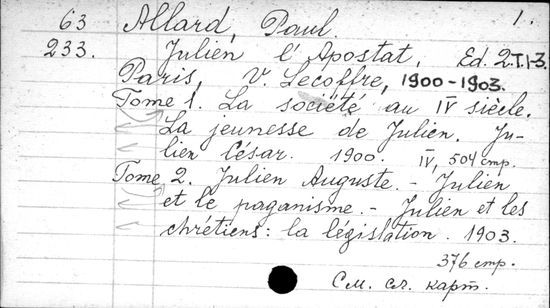 63 Allard, Paul. 1.
233. Julien l'Apostat, Ed. 2. T. 1-3.
Paris, V. Lecoffre, 1900-1903.
Tome 1. La société au IV siècle.
La jeunesse de Julien. Ju-
lien César. 1900. IV, 504 стр.
Tome 2. Julien Auguste. - Julien
et le paganisme. - Julien et les
chrétiens: la législation. 1903.
376 стр.
См. сл. карт.